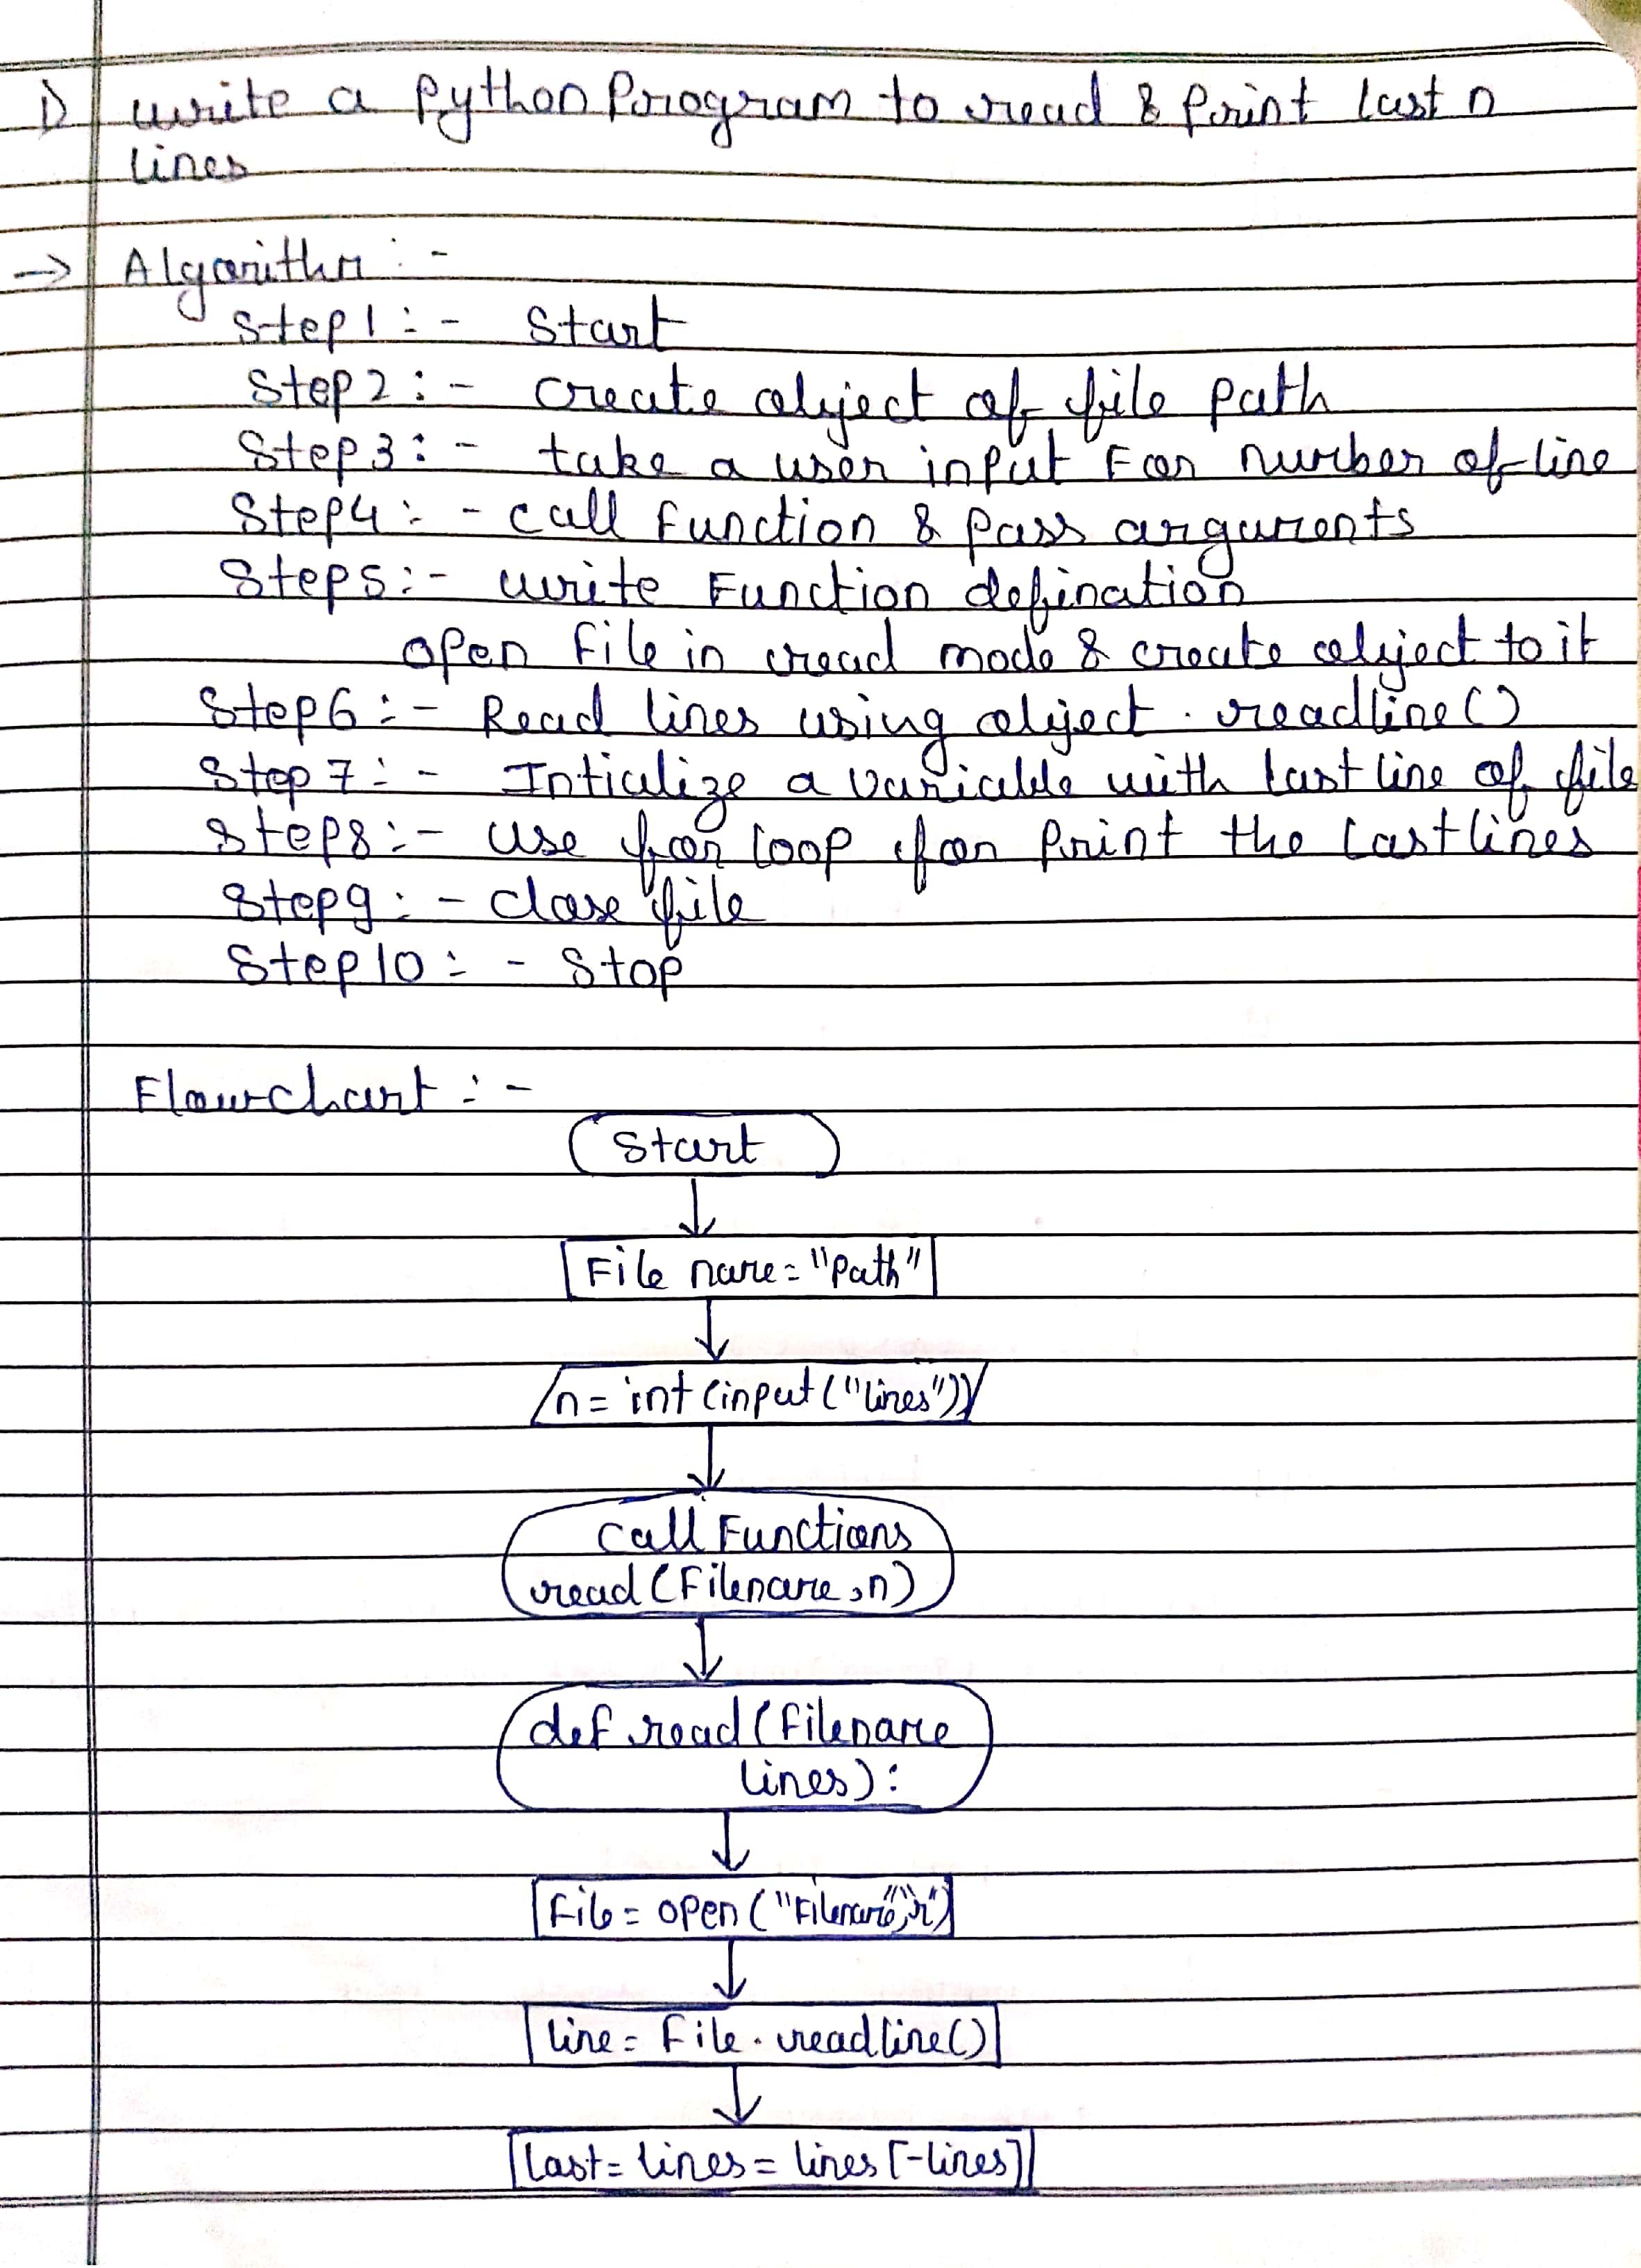 1) write a python Program to read & Print last n
lines
→ Algorithm :-
Step1 :- Start
Step2 :- create object of file path
Step3 :- take a user input For number of line
Step4 :- call function & pass arguments
Step5 :- write Function defination
open file in read mode & create object to it
Step6 :- Read lines using object . readline()
Step7 :- Intialize a variable with last line of file
Step8 :- use for loop for Print the last lines
Step9 :- close file
Step10 :- Stop
Flowchart :-
Start
File name = "Path"
n = int (input ("lines"))
call Functions
read (Filename, n)
def read (Filename
lines) :
File = open ("Filename", "r")
line = File . readline()
last = lines = lines [-lines]